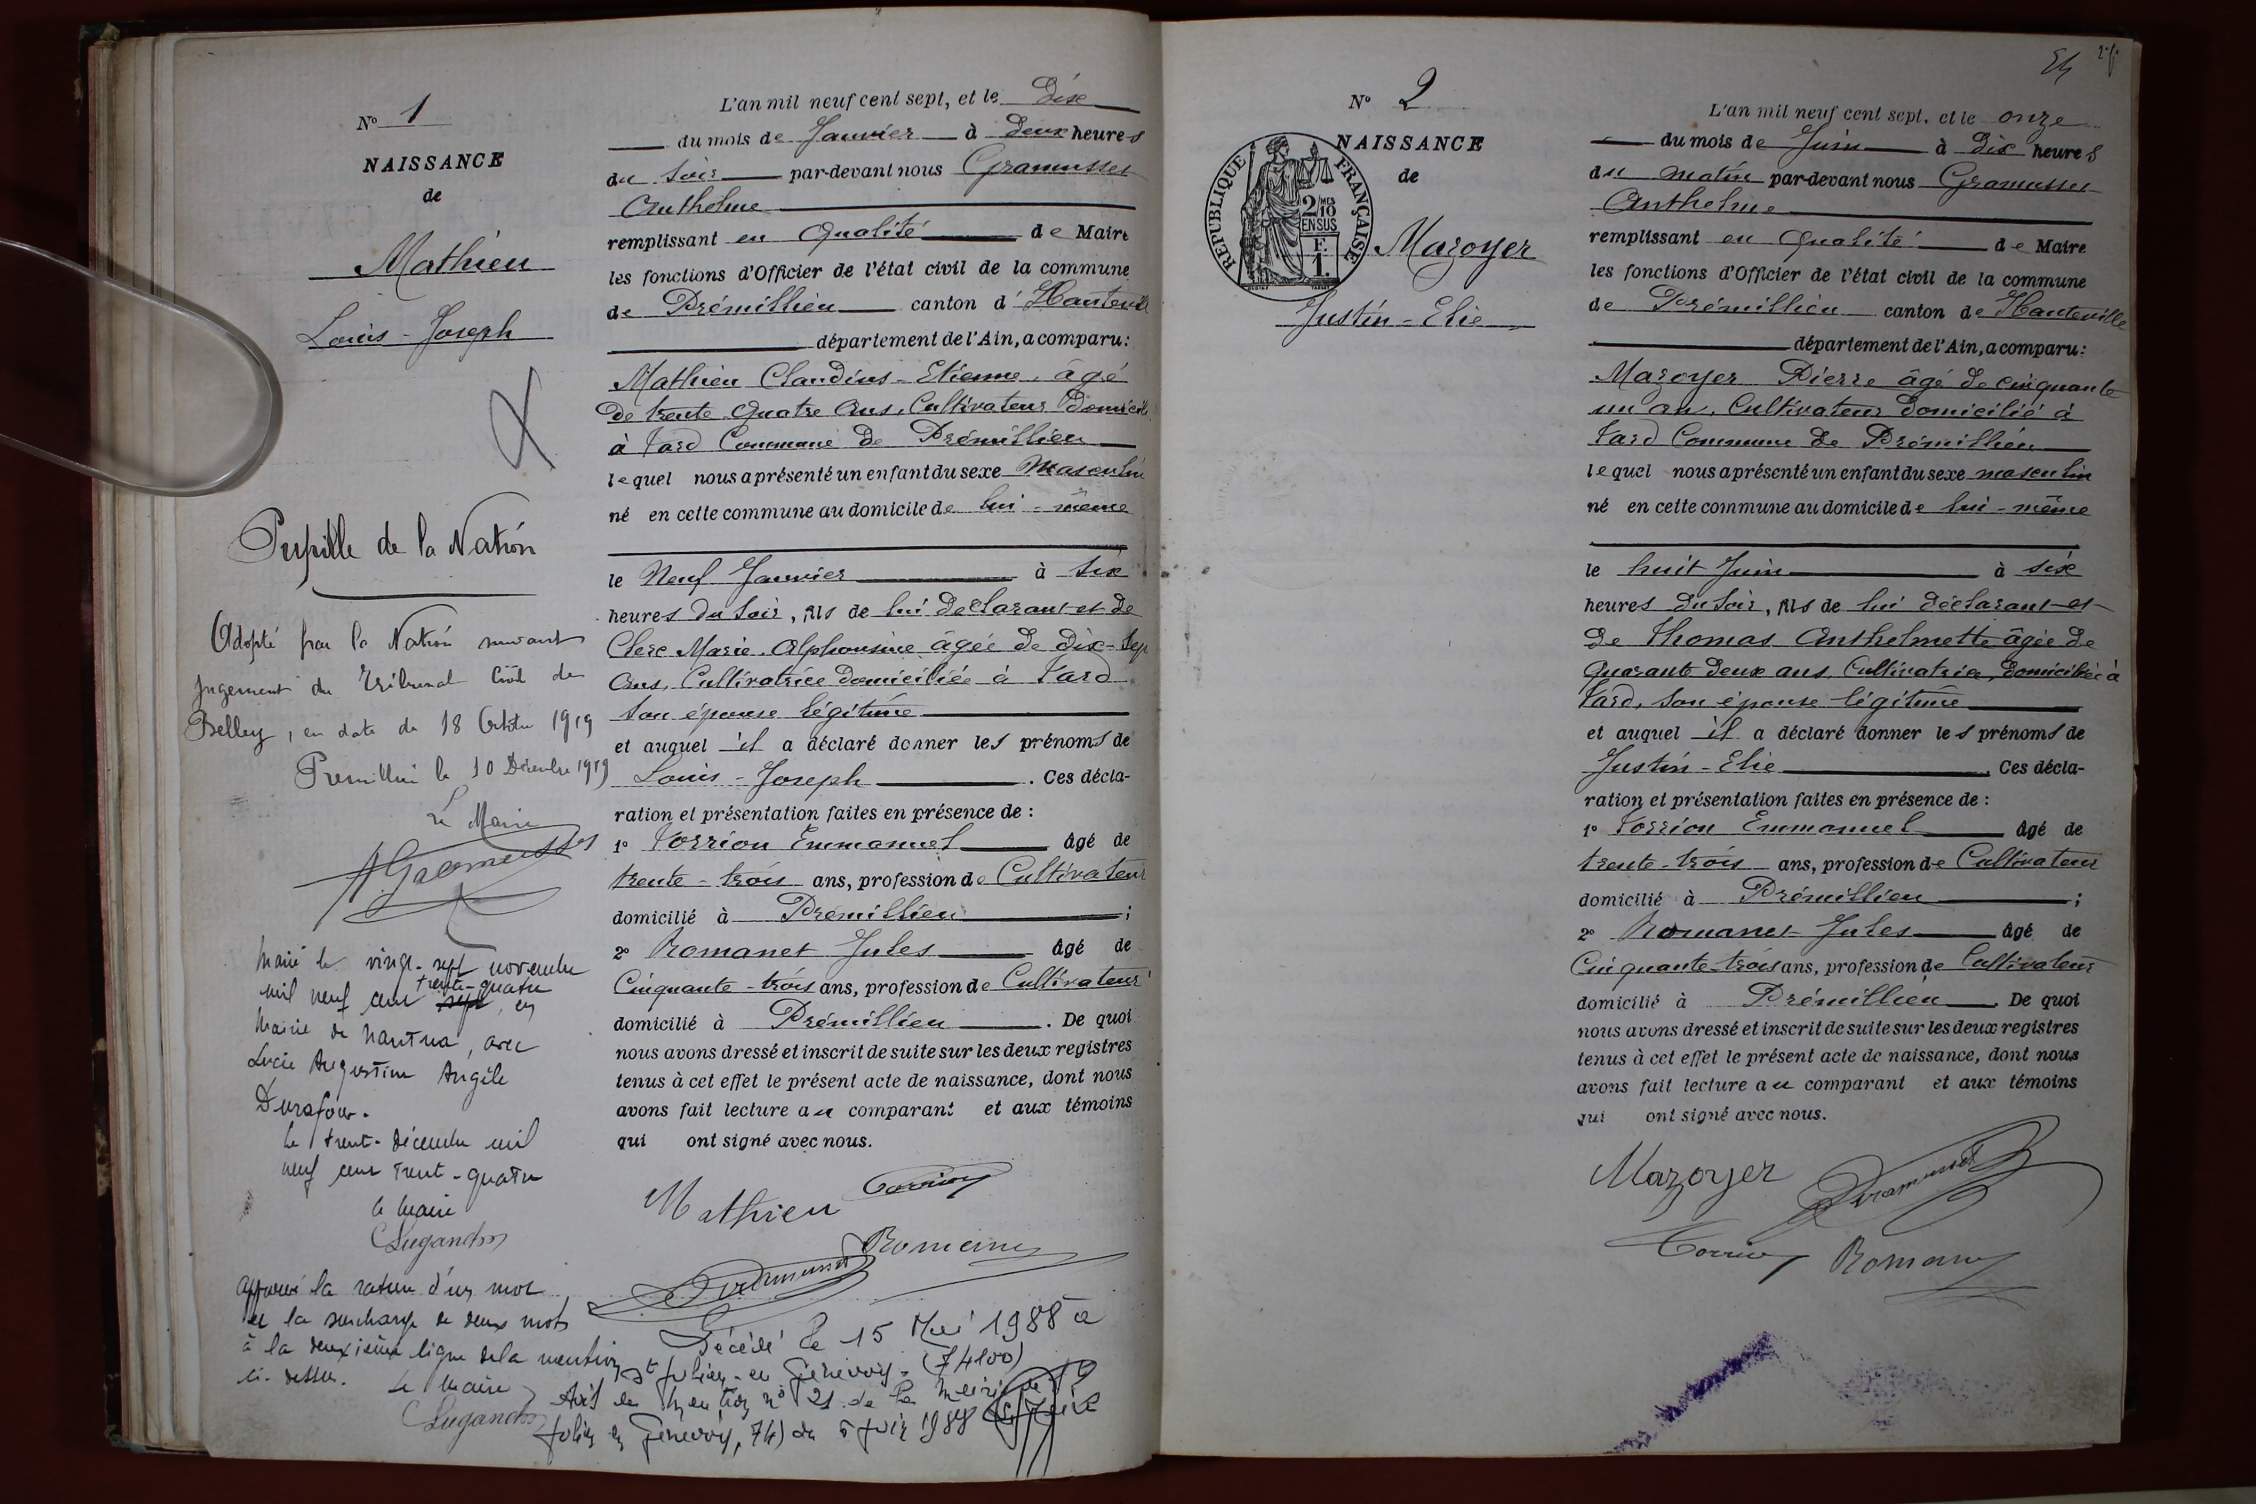 N° 1
NAISSANCE
de
Mathieu
Louis - Joseph
Pupille de la Nation
Adopté par la Nation suivant
jugement du Tribunal Civil de
Belley, en date du 18 Octobre 1919
Prémillieu le 10 Décembre 1919
Le Maire
AGramusset
Marié le vingt-sept novembre
mil neuf cent trente-quatre sept, en
Mairie de Nantua, avec
Lucie Augustine Angèle
Durafour.
Le trente-décembre mil
neuf cent trente-quatre
le Maire
Lugandon
Approuvé la rature d'un mot
et la surcharge de deux mots
à la deuxième ligne de la mention
ci-dessus. Le Maire
Lugandon
L'an mil neuf cent sept, et le Dix
du mois de Janvier à Deux heures
du Soir par-devant nous Gramusset
Anthelme
remplissant en Qualité de Maire
les fonctions d'Officier de l'état civil de la commune
de Prémillieu canton d'Hauteville
département de l'Ain, a comparu :
Mathieu Claudius-Etienne, âgé
de trente Quatre Ans, Cultivateur Domicilié
à Vard Commune de Prémillieu
lequel nous a présenté un enfant du sexe Masculin
né en cette commune au domicile de lui-même
le Neuf Janvier à Six
heures du Soir, fils de lui Déclarant et de
Clerc Marie Alphonsine âgée de Dix-Sept
Ans, Cultivatrice Domiciliée à Vard
Son épouse légitime
et auquel il a déclaré donner les prénoms de
Louis - Joseph . Ces décla-
ration et présentation faites en présence de :
1° Torrion Emmanuel âgé de
trente-trois ans, profession de Cultivateur
domicilié à Prémillieu ;
2° Romanet Jules âgé de
Cinquante-trois ans, profession de Cultivateur
domicilié à Prémillieu . De quoi
nous avons dressé et inscrit de suite sur les deux registres
tenus à cet effet le présent acte de naissance, dont nous
avons fait lecture au comparant et aux témoins
qui ont signé avec nous.
Mathieu Torrion
Gramusset Romanet
Décédé le 15 Mai 1988 à
St Julien-en Genevois - (74100)
Avis de mention n° 21 de la Mairie de St
Julien en Genevois, 74) du 6 Juin 1988 Le Maire
54
N° 2
NAISSANCE
de
REPUBLIQUE FRANÇAISE
2/10 MES
EN SUS
F.
1.
Mazoyer
Justin - Elie
L'an mil neuf cent sept, et le onze
du mois de Juin à Dix heures
du matin par-devant nous Gramusset
Anthelme
remplissant en Qualité de Maire
les fonctions d'Officier de l'état civil de la commune
de Prémillieu canton de Hauteville
département de l'Ain, a comparu :
Mazoyer Pierre âgé de cinquante
un an, Cultivateur domicilié à
Vard Commune de Prémillieu
lequel nous a présenté un enfant du sexe masculin
né en cette commune au domicile de lui-même
le huit Juin à six
heures du Soir, fils de lui déclarant et
de Thomas Anthelmette âgée de
Quarante Deux ans, Cultivatrice, domiciliée à
Vard, Son épouse légitime
et auquel il a déclaré donner les prénoms de
Justin - Elie . Ces décla-
ration et présentation faites en présence de :
1° Torrion Emmanuel âgé de
trente-trois ans, profession de Cultivateur
domicilié à Prémillieu ;
2° Romanet Jules âgé de
Cinquante-trois ans, profession de Cultivateur
domicilié à Prémillieu . De quoi
nous avons dressé et inscrit de suite sur les deux registres
tenus à cet effet le présent acte de naissance, dont nous
avons fait lecture au comparant et aux témoins
qui ont signé avec nous.
Mazoyer Gramusset
Torrion Romanet